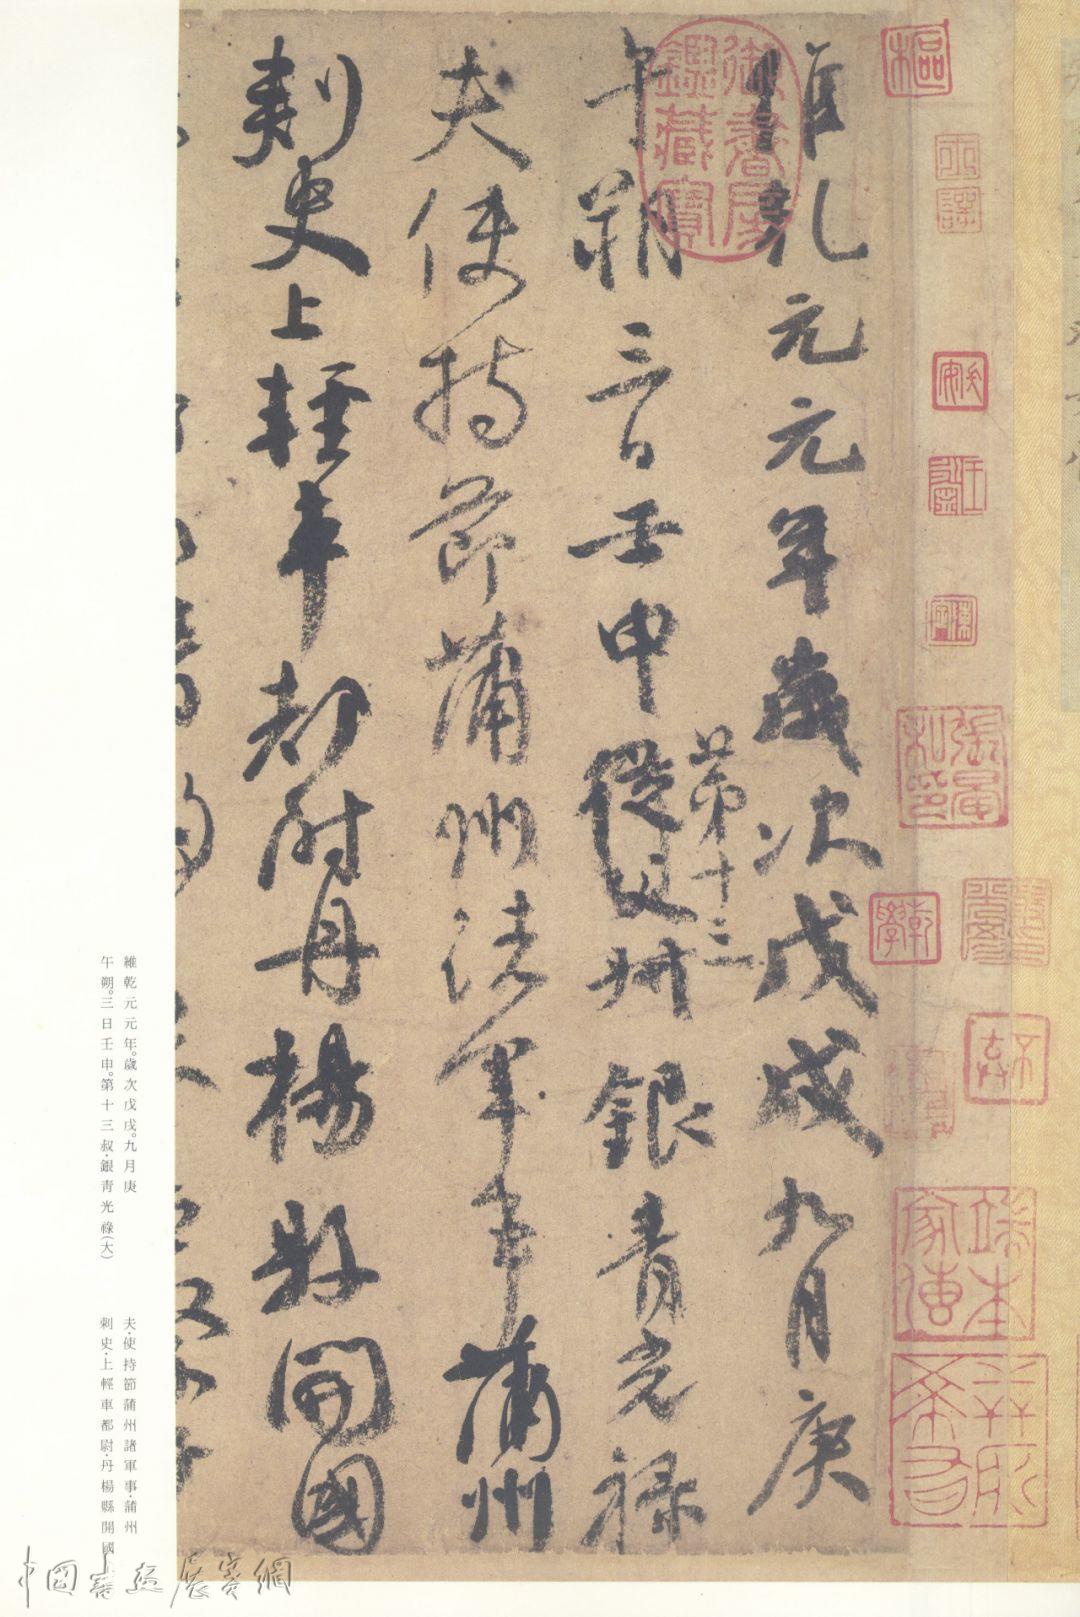 維乾元元年歲次戊戌九月庚
午朔三日壬申第十三從父叔銀青光禄
夫使持節蒲州諸軍事蒲州
刺史上輕車都尉丹楊縣開國
御書房鑑藏寶
樞
維乾元元年。歲次戊戌。九月庚
午朔。三日壬申。第十三叔·銀青光祿(大)
夫·使持節蒲州諸軍事·蒲州
刺史·上輕車都尉·丹楊縣開國
中国書法展賽網